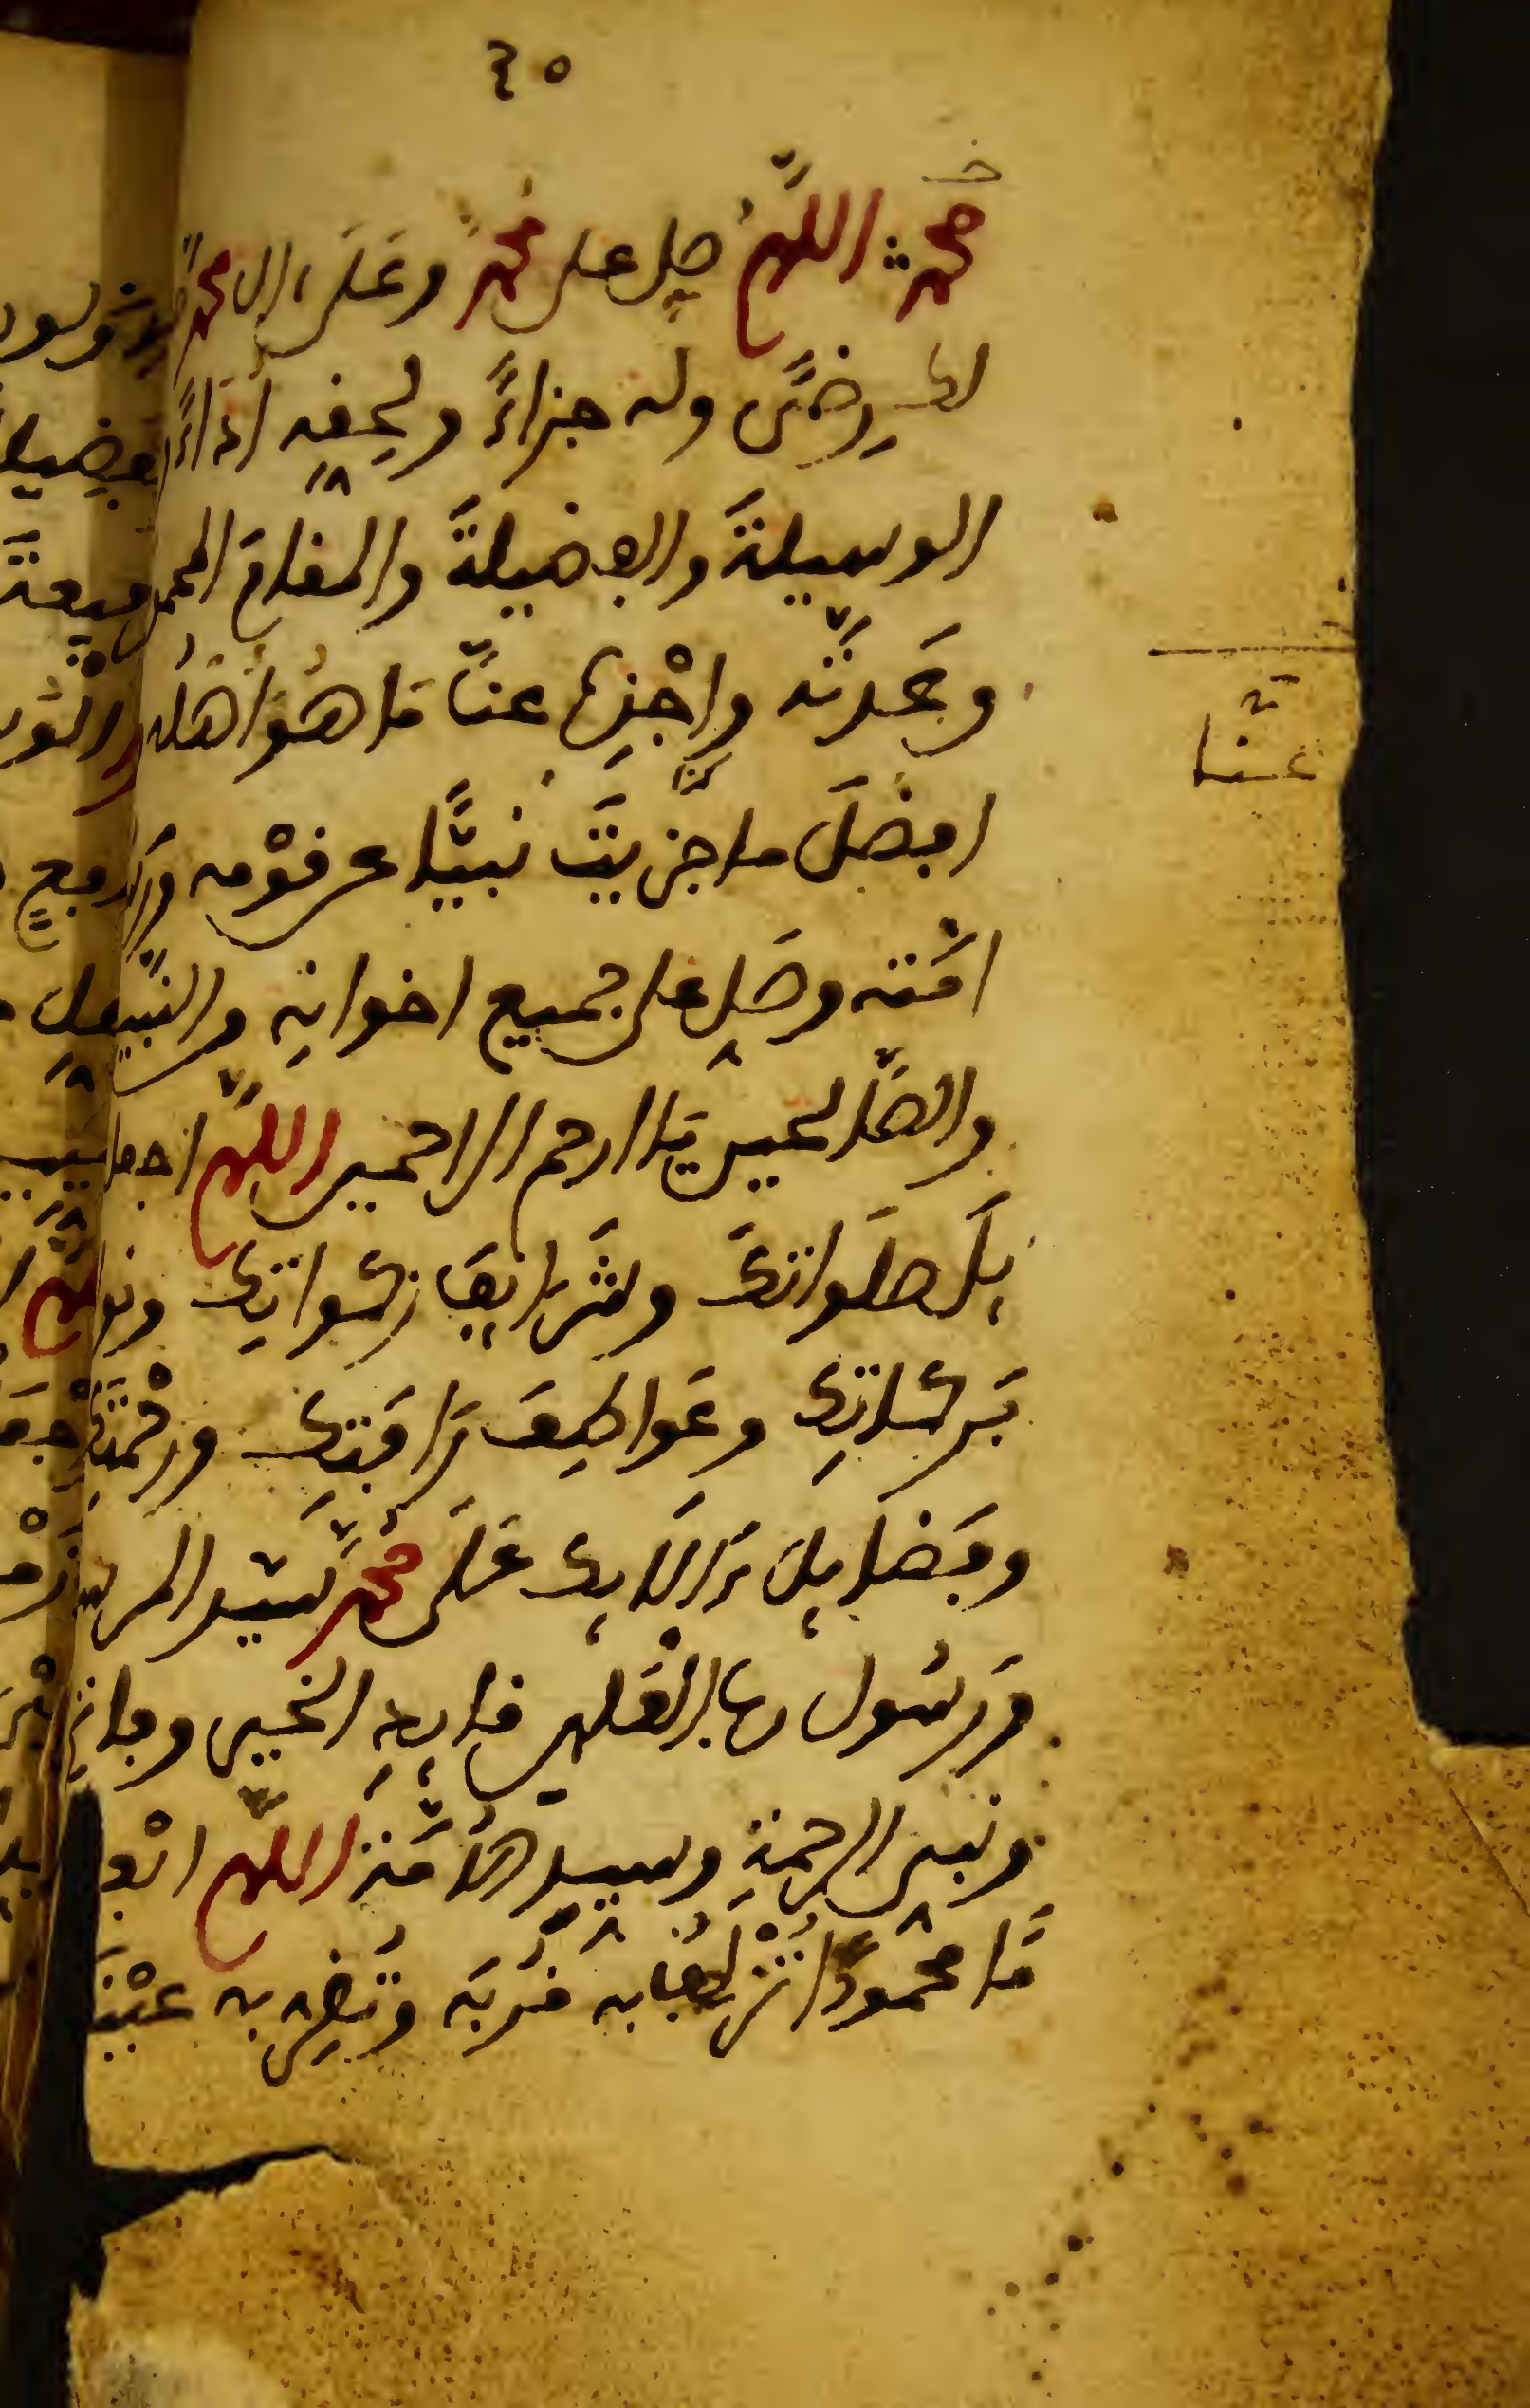 ٤٥
محمد اللهم صل على محمد وعلى ال محمد
لك رضى وله جزاء ولحقه أداء
الوسيلة والفضيلة والمقام المحمو
وعدته واجزه عنا ما هو أهله
عنا
افضل ما جزيت نبيا عن قومه ور
امته وصل على جميع اخوانه والنبيين
والصالحين يا ارحم الراحمين اللهم اجعل
يل صلواتك وشرايف زكواتك ونو
بركاتك وعواطف رافتك ورحمتك
وفضايل ءالايك على محمد سيد المر
ورسول رب العلمين قايد الخير وفاتح
ونبي الرحمة وسيد الأمة اللهم ابعث
ما محمودا تزلف به قربه وتقر به عينه